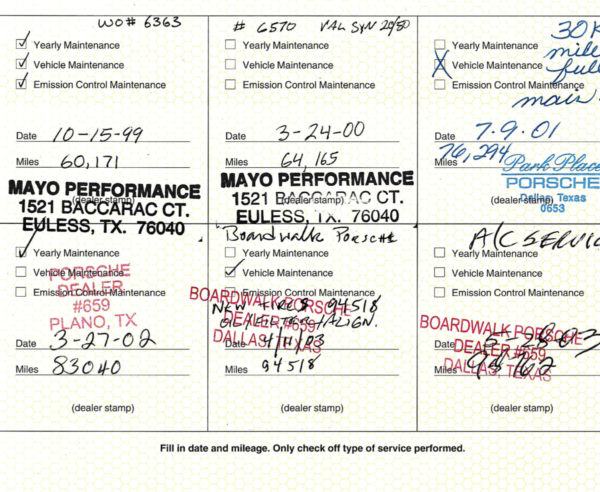 WO# 6363
Yearly Maintenance
Vehicle Maintenance
Emission Control Maintenance
Date 10-15-99
Miles 60,171
MAYO PERFORMANCE
(dealer stamp)
1521 BACCARAC CT.
EULESS, TX. 76040
# 6570 VAL SYN 20/50
Yearly Maintenance
Vehicle Maintenance
Emission Control Maintenance
Date 3-24-00
Miles 64,165
MAYO PERFORMANCE
(dealer stamp)
1521 BACCARAC CT.
EULESS, TX. 76040
30K
Yearly Maintenance
mile
Vehicle Maintenance
full
Emission Control Maintenance
Date 7.9.01
Miles 76,294
Park Place
PORSCHE
Dallas, Texas
(dealer stamp)
0653
Yearly Maintenance
Vehicle Maintenance
Emission Control Maintenance
PORSCHE
DEALER
#659
PLANO, TX
Date 3-27-02
Miles 83040
(dealer stamp)
Boardwalk PORSCHE
Yearly Maintenance
Vehicle Maintenance
Emission Control Maintenance
BOARDWALK PORSCHE
NEW TIRES 94518
ALIGN.
DEALER #659
DALLAS, TEXAS
Date 4/11/03
Miles 94518
(dealer stamp)
A/C SERVIC
Yearly Maintenance
Vehicle Maintenance
Emission Control Maintenance
BOARDWALK PORSCHE
DEALER #659
DALLAS, TEXAS
Date 5-28-03
Miles
(dealer stamp)
Fill in date and mileage. Only check off type of service performed.